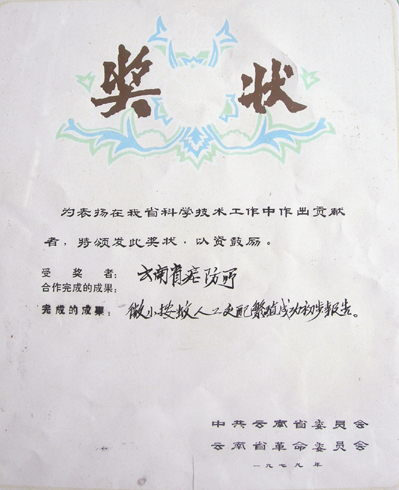 奖状
为表扬在我省科学技术工作中作出贡献
者，特颁发此奖状，以资鼓励。
受奖者：云南省疟防所
合作完成的成果：
完成的成果：微小按蚊人工交配繁殖成功初步报告。
中共云南省委员会
云南省革命委员会
一九七九年